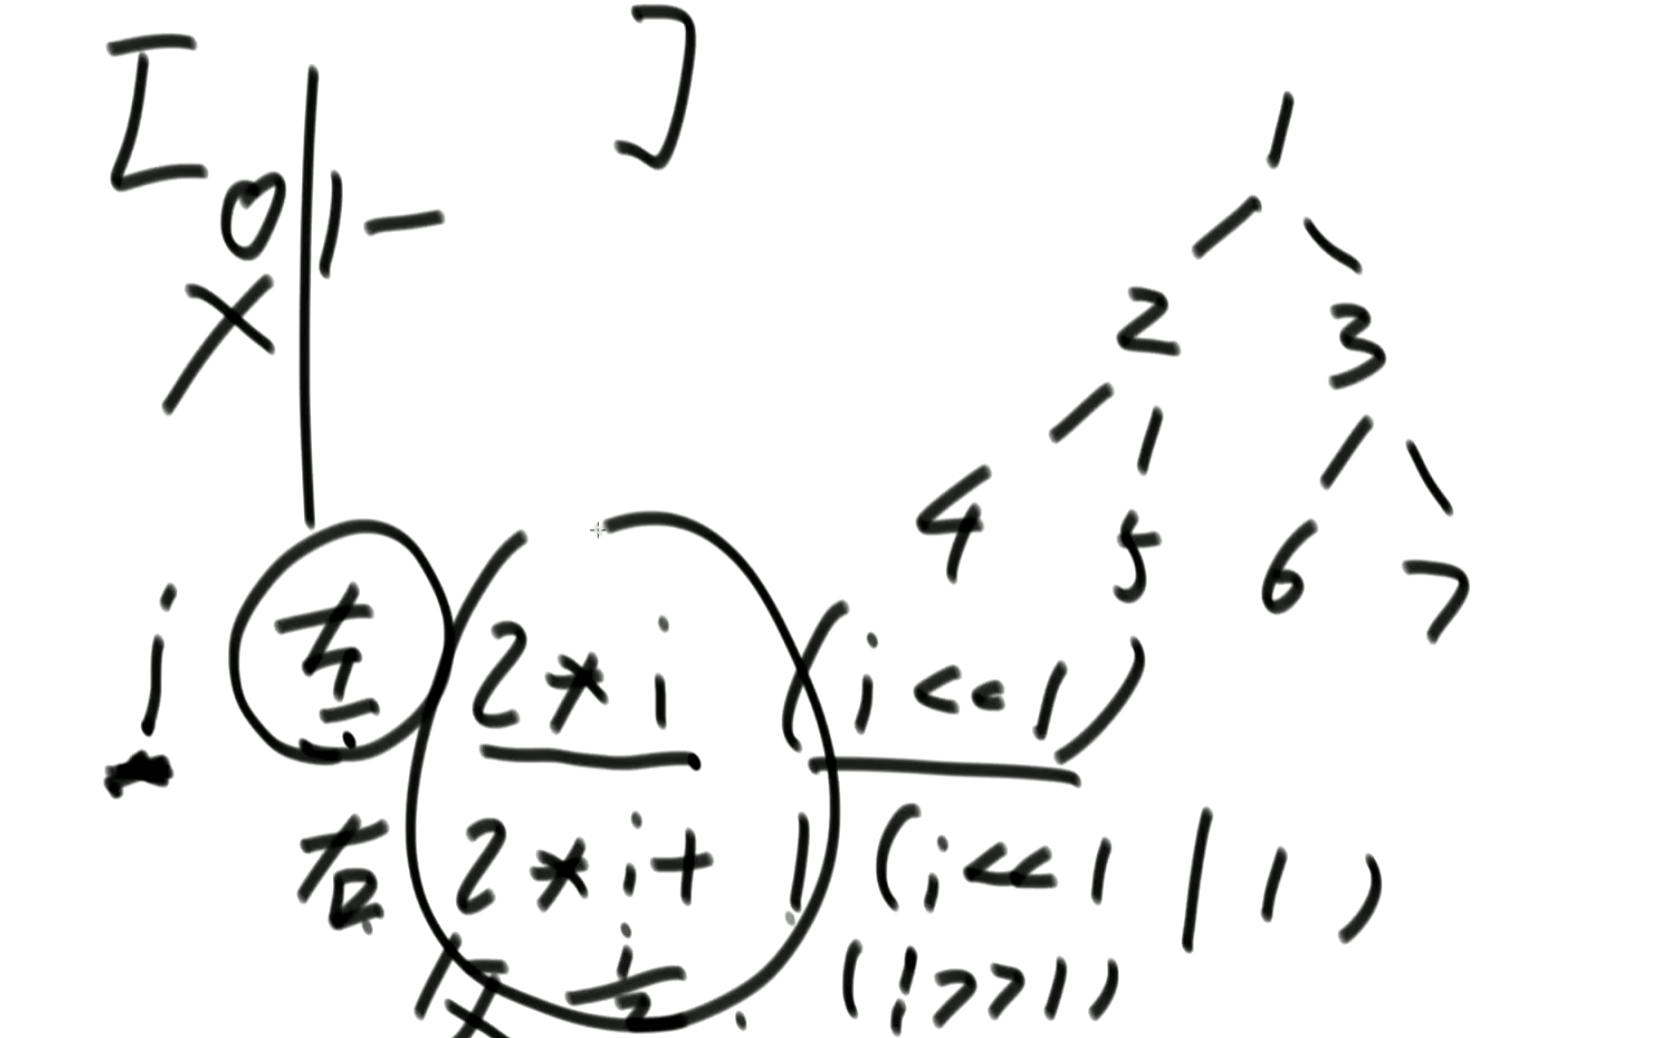 [ ]
0 1 -
1
2 3
4 5 6 7
i 左 2*i (i<<1)
右 2*i+1 (i<<1 | 1)
父 i/2 (i>>1)